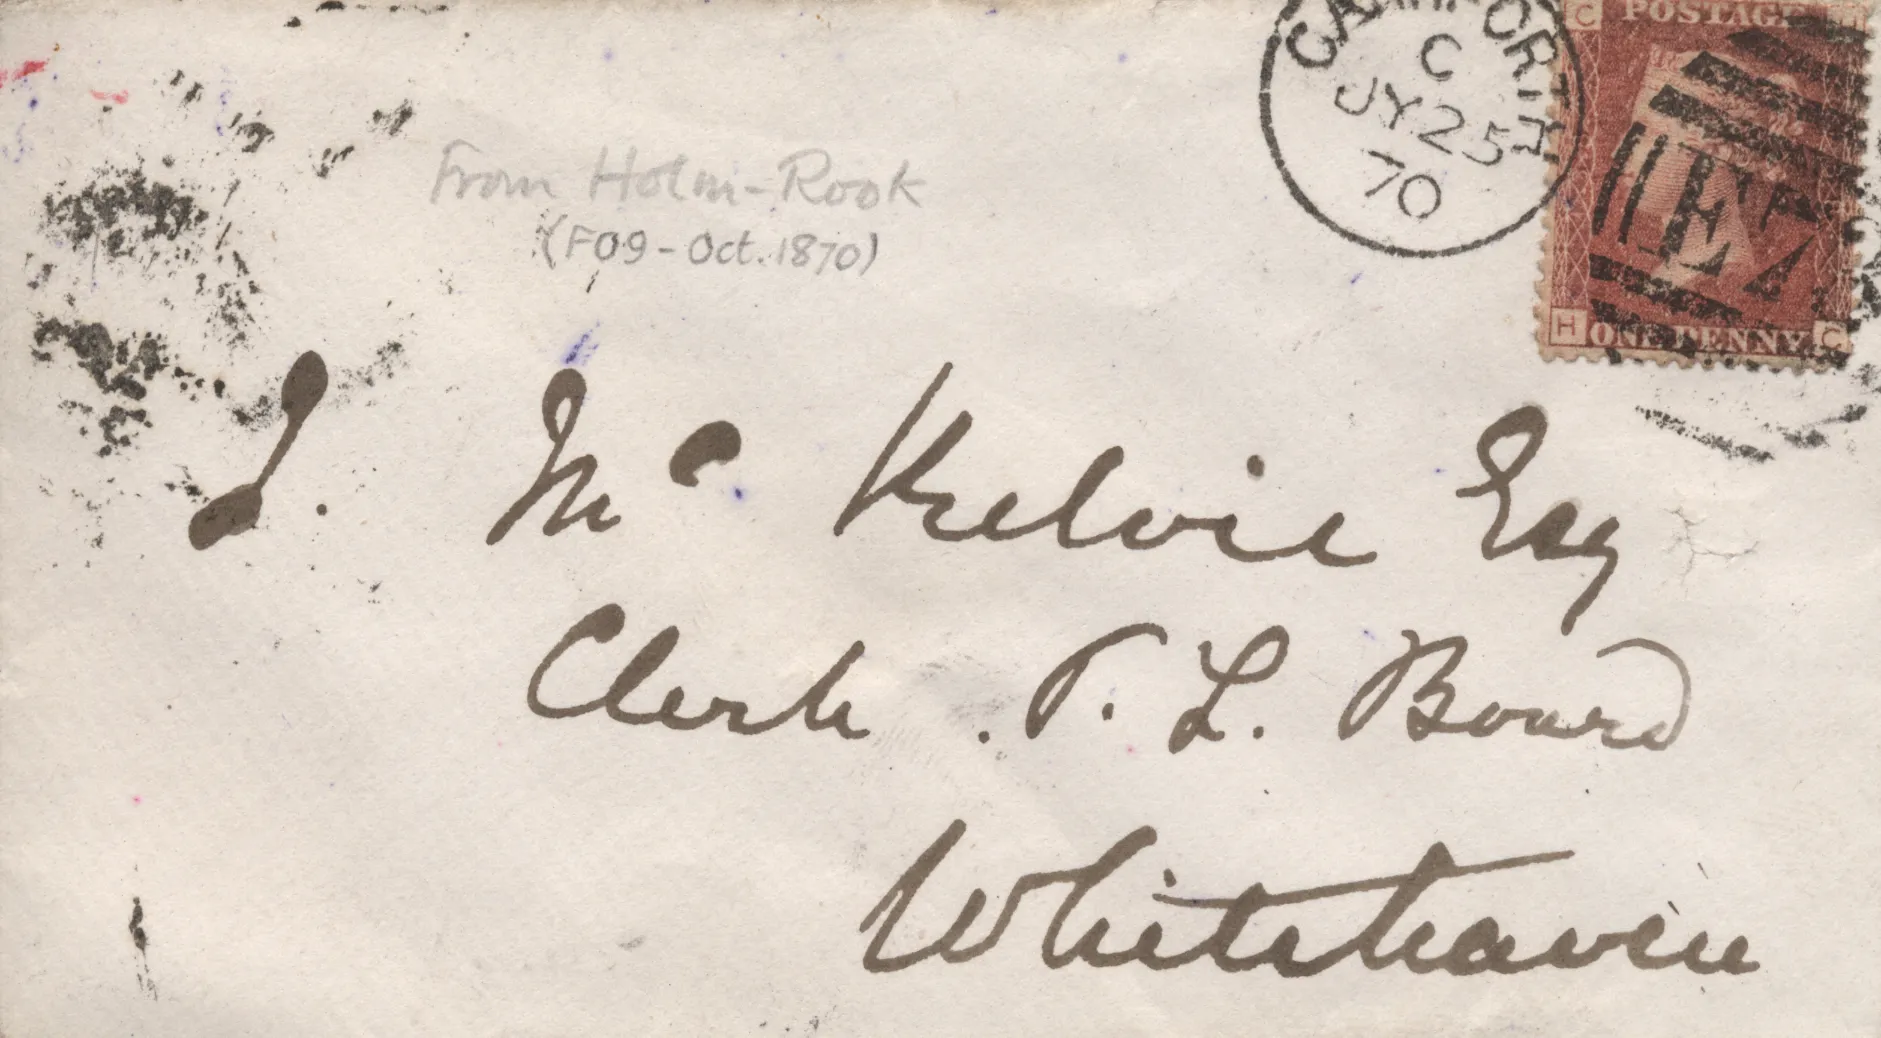 CARNFORTH
C
JY 25
70
C POSTAGE H
E
H ONE PENNY C
From Holm-Rook
(F09 - Oct. 1870)
J. Mc Kelvie Esq
Clerk . P. L. Board
Whitehaven